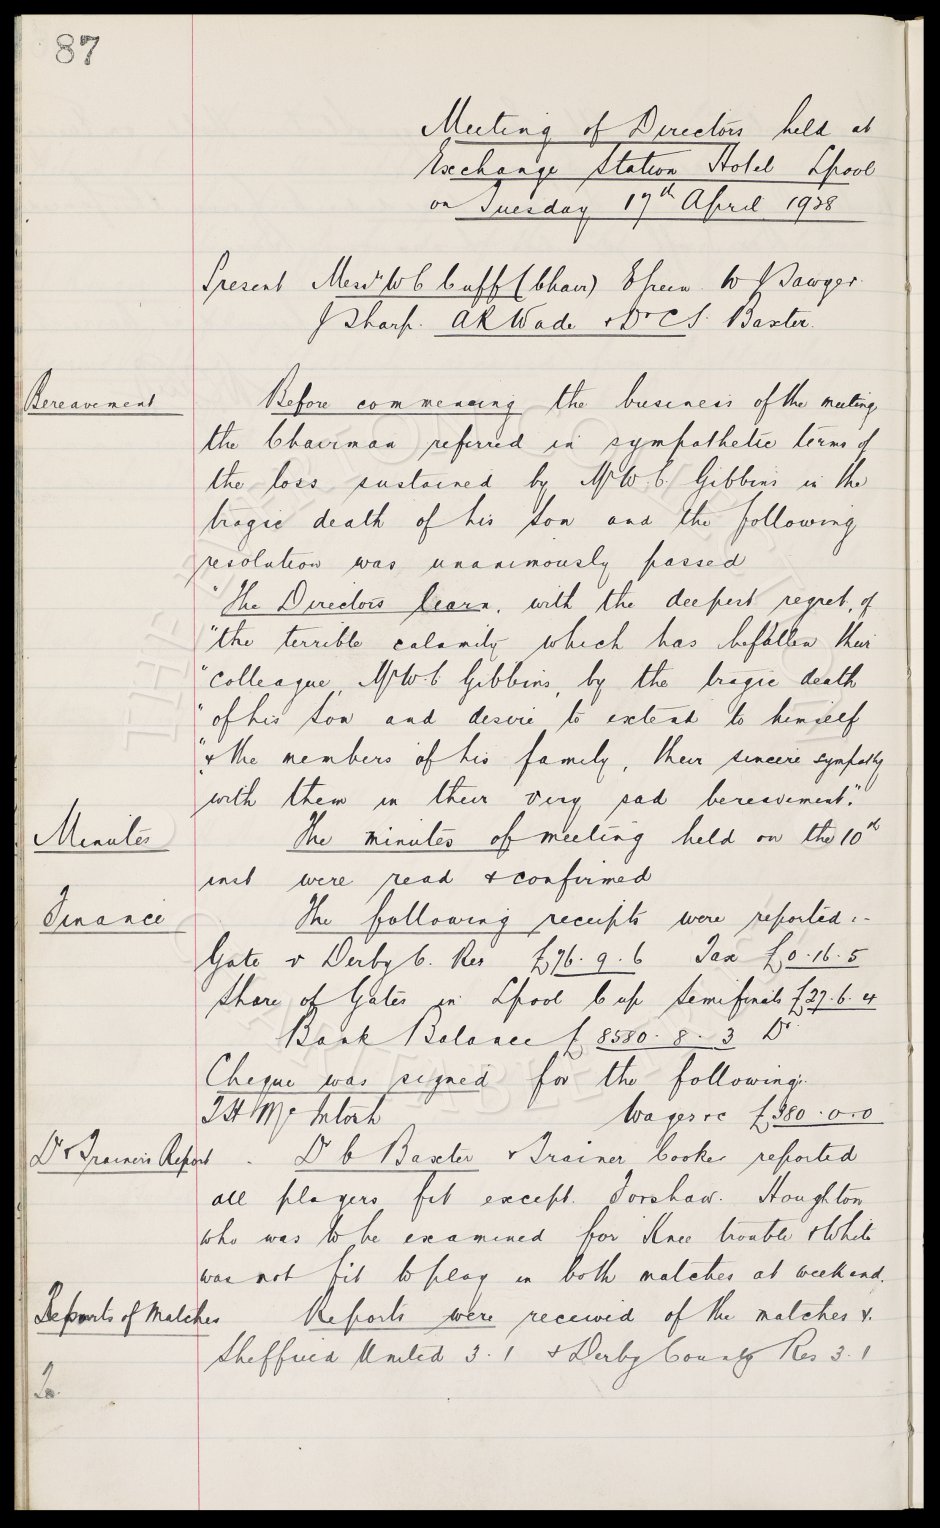 87
Meeting of Directors held at
Exchange Station Hotel Lpool
on Tuesday 17th April 1928
Present Messrs W C Cuff (Chair) E Green W J Sawyer
J Sharp. A R Wade & Dr C S. Baxter.
Bereavement Before commencing the business of the meeting
the Chairman referred in sympathetic terms of
the loss sustained by Mr W. C. Gibbins in the
tragic death of his son and the following
resolution was unanimously passed
"The Directors learn, with the deepest regret, of
"the terrible calamity which has befallen their
"colleague, Mr W. C Gibbins, by the tragic death
"of his son and desire to extend to himself
"& the members of his family, their sincere sympathy
"with them in their very sad bereavement."
Minutes The minutes of meeting held on the 10th
inst were read & confirmed
Finance The following receipts were reported :-
Gate v Derby C. Res £76. 9. 6 Tax £0. 16. 5
Share of Gates in Lpool Cup Semifinals £27. 6. 4
Bank Balance £8580. 8. 3 Dr.
Cheque was signed for the following:
T H McIntosh Wages &c £380. 0. 0
Dr & Trainers Report Dr C Baxter & Trainer Cooke reported
all players fit except. Forshaw. Houghton
who was to be examined for Knee trouble & White
was not fit to play in both matches at weekend.
Reports of Matches Reports were received of the matches v.
Sheffield United 3. 1 & Derby County Res 3. 1